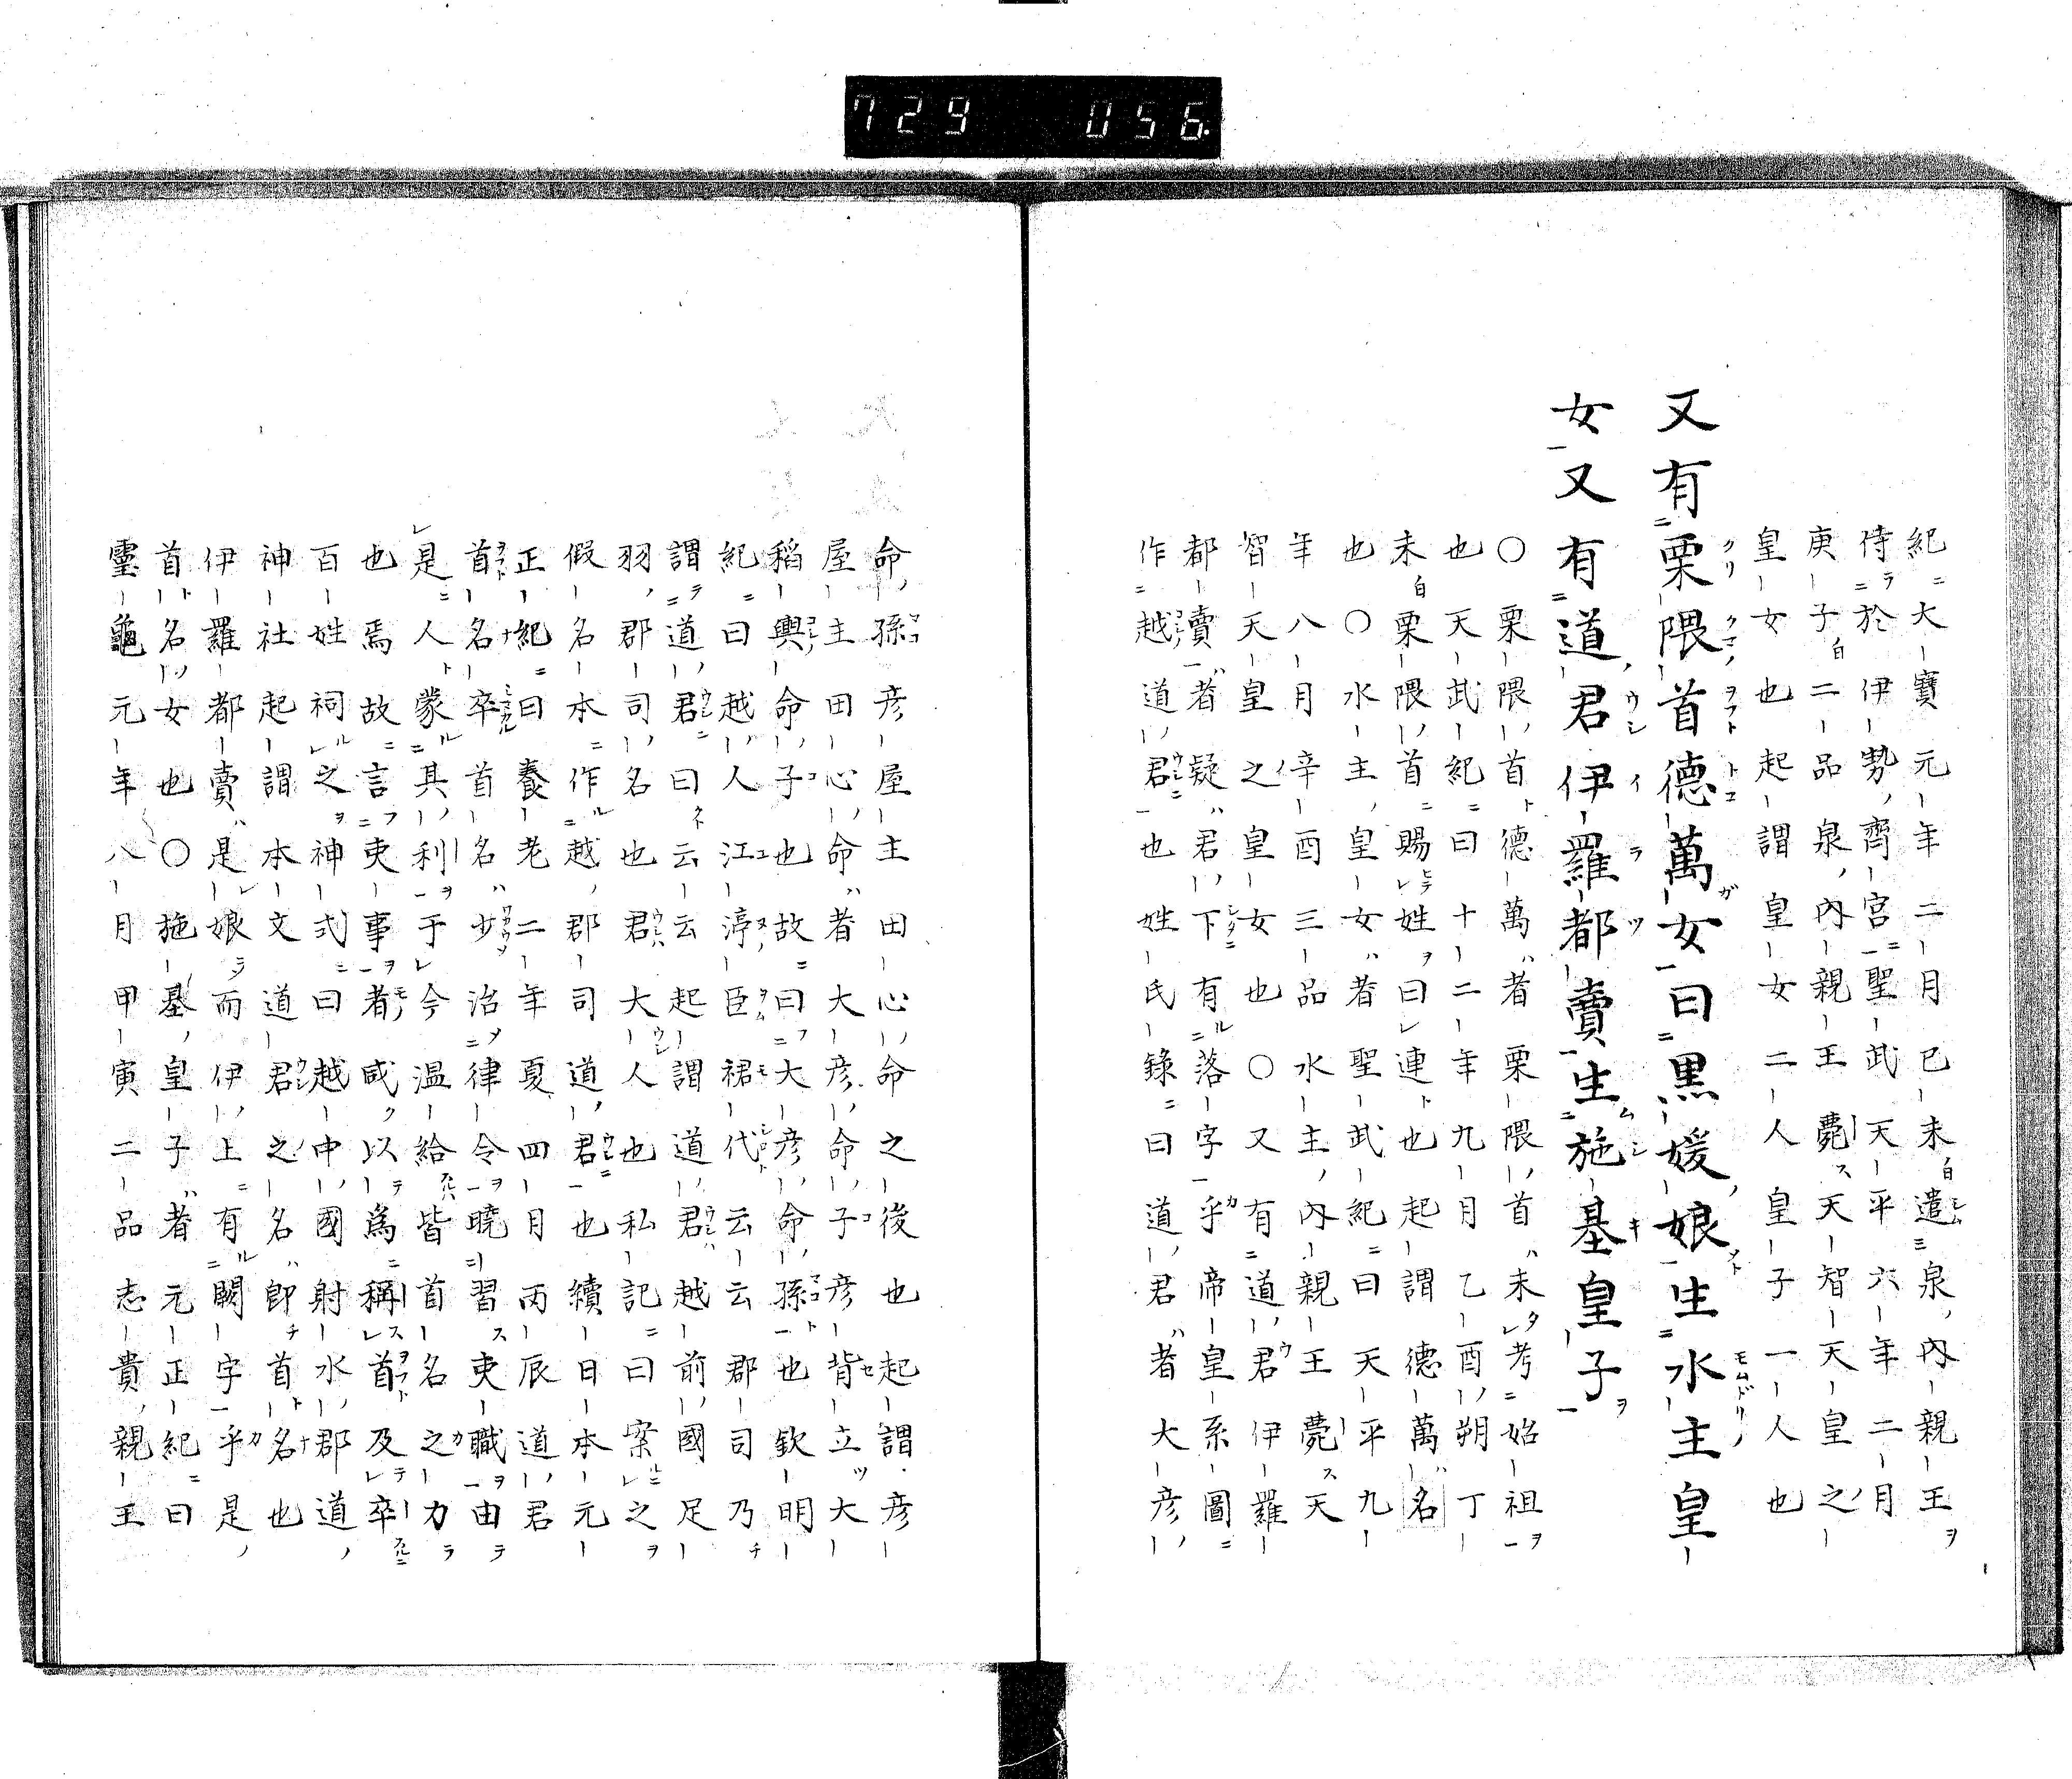 729 056.
紀大寶元年二月已未遣泉内親王
侍於伊勢齊宮聖武天平六年二月
庚子二品泉内親王薨天智天皇之
皇女也起謂皇女二人皇子一人也
又有栗隈首德萬女曰黒媛娘生水主皇
女又有道君伊羅都賣生施基皇子
〇栗隈首德萬者栗隈首未考始祖
也天武紀曰十二年九月乙酉朔丁
未栗隈首賜姓曰連也起謂德萬名
也〇水主皇女者聖武紀曰天平九
年八月辛酉三品水主内親王薨天
智天皇之皇女也〇又有道君伊羅
都賣者疑君下有落字乎帝皇系圖
作越道君也姓氏錄曰道君者大彦
命孫彦屋主田心命之後也起謂彦
屋主田心命者大彦命子彦背立大
稻輿命子也故曰大彦命孫也欽明
紀曰越人江渟臣裙代云云郡司乃
謂道君曰云云起謂道君越前國足
羽郡司名也君大人也私記曰案之
假名本作越郡司道君也續日本元
正紀曰養老二年夏四月丙辰道君
首名卒首名少治律令曉習吏職由
是人蒙其利于今温給皆首名之力
也焉故言吏事者咸以爲稱首及卒
百姓祠之神式曰越中國射水郡道
神社起謂本文道君之名即首名也
伊羅都賣是娘而伊上有闕字乎是
首名女也〇施基皇子者元正紀曰
靈龜元年八月甲寅二品志貴親王